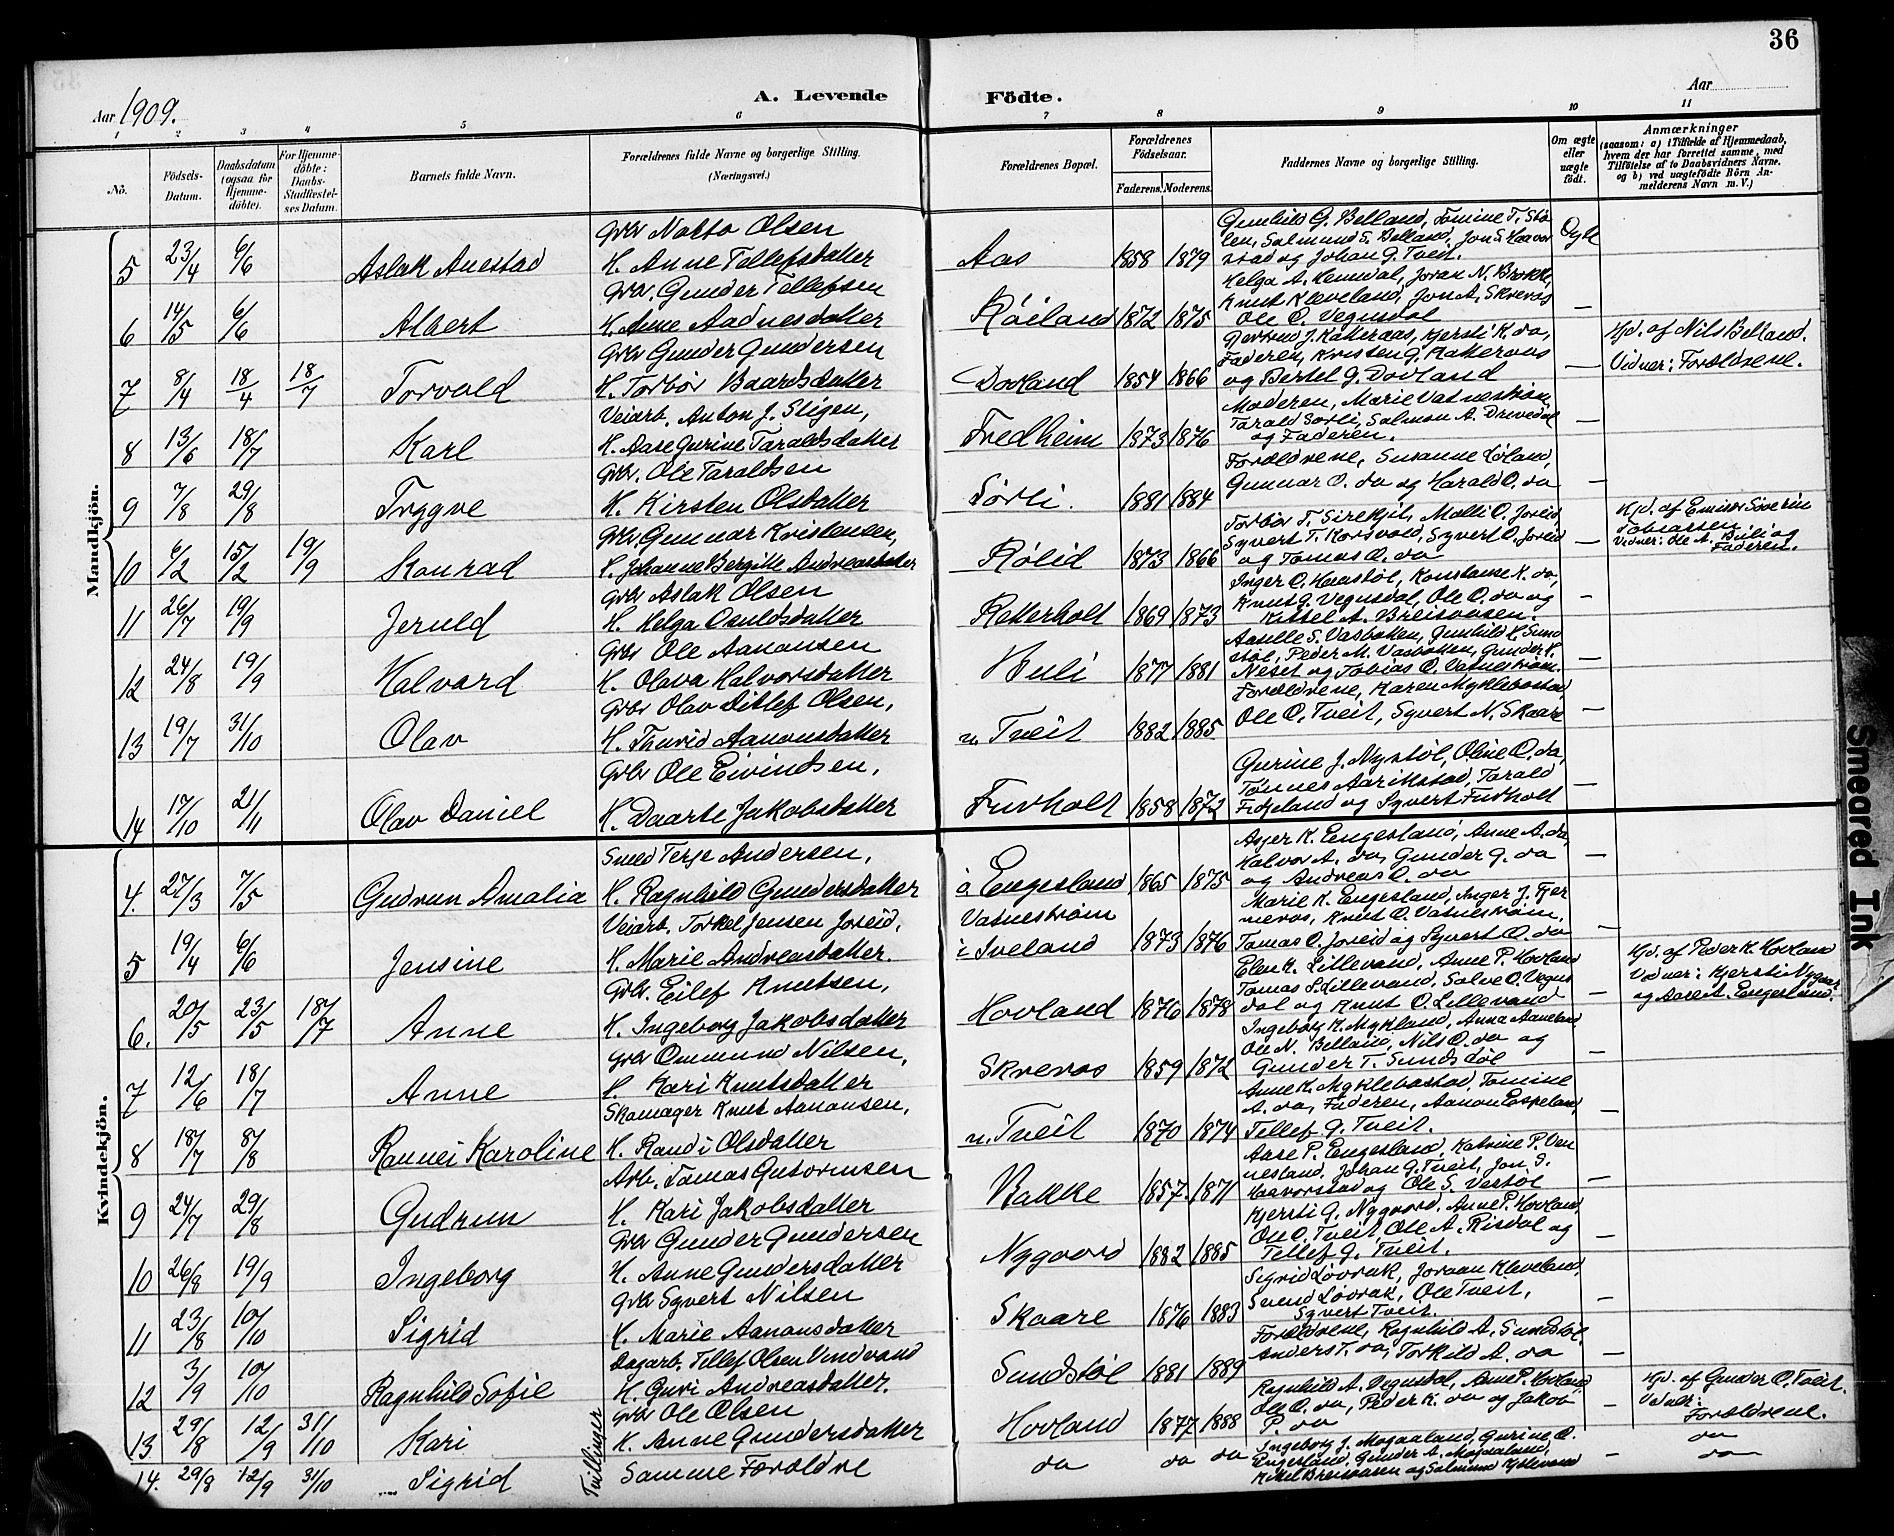 36
Aar 1909.
A. Levende Födte.
Aar
1 2 3 4 5 6 7 8 9 10 11
No.
Födsels-Datum.
Daabsdatum (ogsaa for Hjemme-döbte).
For Hjemme-döbte: Daabs-Stadfæstel-ses Datum.
Barnets fulde Navn.
Forældrenes fulde Navne og borgerlige Stilling. (Næringsvei.)
Forældrenes Bopæl.
Forældrenes Födselsaar.
Faderens. Moderens.
Faddernes Navne og borgerlige Stilling.
Om ægte eller uægte födt.
Anmærkninger (saasom: a) i Tilfælde af Hjemmedaab, hvem der har forrettet samme, med Tilföielse af to Daabsvidners Navne. og b) ved uægtefödte Börn An-melderens Navn m. V.)
Mandkjön.
5 23/4 6/6 Aslak Anestad
Gbr Notto Olsen
H. Anne Tellefsdatter
Aas 1858 1879
Gunhild G. Belland, Tomine T. Stø-
len, Salmund S. Belland, Jon S. Haavor
stad og Johan G. Tveit.
Ægte
6 14/5 6/6 Albert
Gbr. Gunder Tellefsen
H. Anne Aadnesdatter
Røiland 1872 1875
Helga A. Hemdal, Joran N. Brokke,
Knut Kleveland, Jon A. Skreros
Ole O. Vegusdal
—
7 8/4 18/4 18/7 Torvald
Gbr Gunder Gundersen
H. Torbor Baardsdatter
Dovland 1854 1866
Faderen, Kristen G. Katteraas
og Bertel G. Dovland
—
Hjd. af Nils Belland.
Vidner: Forældrene.
8 13/6 18/7 Karl
Veiarb. Anton J. Stigen,
H. Aase Gurine Taraldsdatter
Fredheim 1873 1876
Moderen, Marie Vatnestrøm,
Tarald Sørli, Salmon A. Drivedal
og Faderen.
—
9 7/8 29/8 Trygve
Gbr. Ole Taraldsen
H. Kirsten Olsdatter
Sørli. 1881 1884
Forældrene, Susanne Løland,
Gunnar O. do og Harald O. do
—
10 6/2 15/2 19/9 Konrad
Gbr. Gunnar Kristensen,
H. Johanne Bergitte Andreasdatter
Rølid 1873 1866
Torbor T. Sirekjil, Malli O. Joreid,
Syvert T. Korsvold, Syvert O. Joreid
og Tomas O. do
—
Hjd. af Emissær Søverin
Tobiassen.
Vidner: Ole A. Huli og
Faderen.
11 26/7 19/9 Jeruld
Gbr Aslak Olsen
H. Helga Osuldsdatter
Retterholt 1869 1873
Inger O. Haastøl, Konstanse K. do,
Knut G. Vegusdal, Ole O. do og
Kittel A. Breisvasen.
—
12 24/8 19/9 Halvard
Gbr Ole Aanonsen
H. Olava Halvorsdatter
Huli 1877 1881
Aaselle S. Vasbotten, Gunhild H. Sund
støl, Peder M. Vasbotten, Gunder H.
Neset og Tobias O. Vatnestrøm.
—
13 19/7 31/10 Olav
Gbr Olav Ditlef Olsen,
H. Thurid Aanonsdatter
n. Tveit 1882 1885
Forældrene, Karen Myklebostad,
Ole O. Tveit, Syvert N. Skaare
—
14 17/10 21/11 Olav Daniel
Gbr Ole Eivindsen,
H. Daarte Jakobsdatter
Furholt 1858 1872
Gurine J. Nystøl, Oline O. do,
Tønnes Aarikstad, Tarald
Fidjeland og Syvert Furholt
—
Kvindekjön.
4. 27/3 7/5 Gudrun Amalia
Smed Terje Andersen,
H. Ragnhild Gundersdatter
ø Engesland 1865 1875
Asjer K. Engesland, Anne A. do,
Halvor A. do, Gunder G. do
og Andreas O. do
—
5 19/4 6/6 Jensine
Veiarb. Torkel Jensen Joreid,
H. Marie Andreasdatter.
Vatnestrøm
i Iveland 1873 1876
Marie K. Engesland, Inger J. Fjer
meros, Knut O. Vatnestrøm,
Tomas O. Joreid og Syvert O. do
—
6. 20/5 23/5 18/7 Anne
Gbr. Eilef Knutsen,
H. Ingeborg Jakobsdatter
Hovland 1876 1878
Elen K. Lillevand, Anne P. Hovland
Tomas S. Lillevand, Salve O. Vegus
dal og Knut O. Lillevand
—
Hjd. af Peder K. Hovland
Vidner: Kjersti Nygaar
og Aase A. Engesland.
7 12/6 18/7 Anne
Gbr Ommund Nilsen,
H. Kari Knutsdatter
Skreros 1859 1872
Ingeborg K. Mykland, Anna Aaneland
Ole N. Belland, Nils O. do og
Gunder T. Sundstøl
—
8 18/7 8/8 Rannei Karoline
Skomager Knut Aanonsen,
H. Randi Olsdatter
n. Tveit 1870 1874
Anne K. Myklebostad, Tomine
A. do, Faderen, Aanon Espeland,
Tellef G. Tveit.
—
9 24/7 29/8 Gudrun
Arb. Tomas Gutormsen
H. Kari Jakobsdatter
Bakke 1857 1871
Aase P. Engesland, Katrine P. Ven
nesland, Johan G. Tveit, Jon S.
Haavorstad og Ole S. Vestøl
—
10 26/8 19/9 Ingeborg
Gbr Gunder Gundersen
H. Anne Gundersdatter
Nygaard 1882 1885
Kjersti G. Nygaard, Anne P. Hovland,
Ole O. Tveit, Ole A. Risdal og
Tellef G. Tveit.
—
11 23/8 10/10 Sigrid
Gbr Syvert Nilsen
H. Marie Aanonsdatter
Skaare 1876 1883
Sigrid Løvrak, Joraan Kleveland,
Svend Løvrak, Ole Tveit,
Syvert Tveit.
—
12 3/9 10/10 Ragnhild Sofie
Dagarb. Tellef Olsen Vindvand
H. Guri Andreasdatter.
Sundstøl 1881 1889
Forældrene, Ragnhild A. Sundstøl,
Anders T. do, Torkild A. do
—
13 29/8 12/9 31/10 Kari
Tvillinger
Gbr Ole Olsen
H. Anne Gundersdatter
Hovland 1877 1888
Ragnhild A. Vegusdal, Anne P. Hovland
Ole O. do, Peder K. do og Jakob
P. do
—
Hjd. af Gunder O. Tveit.
Vidner:
Forældrene.
14. 29/8 12/9 31/10 Sigrid
Samme Forældre
do do do
Ingeborg J. Mogaaland, Gurine O.
Engesland, Gunder A. Mogaaland,
Kittel Breisvasen og Salmund Kyllevand
—
do
do
Smeared Ink